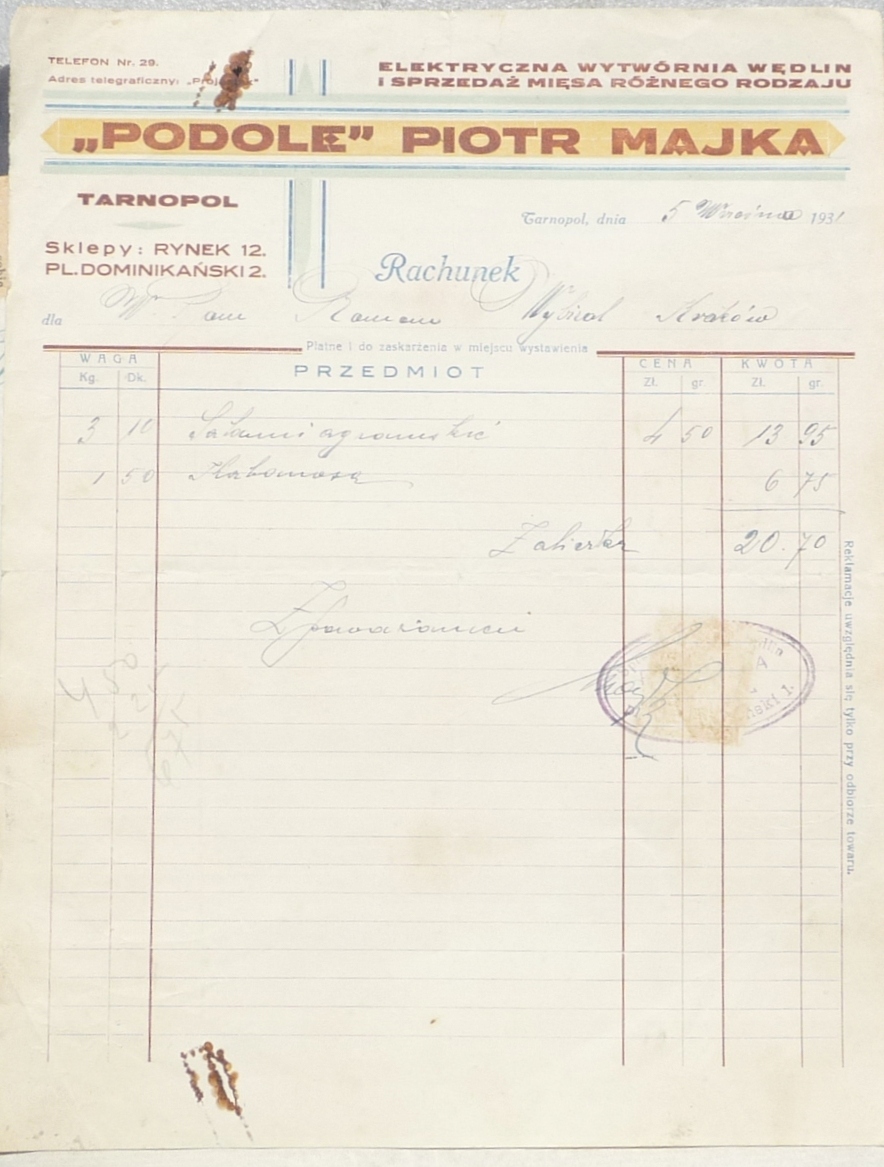 TELEFON Nr. 29.
Adres telegraficzny:
ELEKTRYCZNA WYTWÓRNIA WĘDLIN
I SPRZEDAŻ MIĘSA RÓŻNEGO RODZAJU
„PODOLE” PIOTR MAJKA
TARNOPOL
Sklepy: RYNEK 12.
PL. DOMINIKAŃSKI 2.
Tarnopol, dnia 5 Września 1931
Rachunek
dla Wn Pan Roman Kraków
Płatne i do zaskarżenia w miejscu wystawienia
WAGA PRZEDMIOT CENA KWOTA
Kg. Dk. Zł. gr. Zł. gr.
3 10 Salami 4 50 13 95
1 50 6 75
20.70
Z poważaniem
4 50
2 25
6 75
Reklamacje uwzględnia się tylko przy odbiorze towaru.